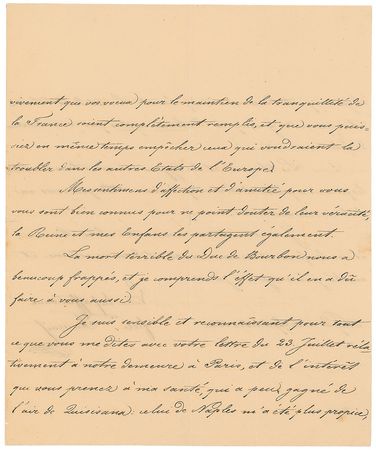 vivement que vos voeux pour le maintien de la tranquillité de
la France soient complètement remplis, et que vous puis-
siez en même temps empêcher ceux qui voudraient la
troubler dans les autres Etats de l'Europe.
Mes sentimens d'affection et d'amitié pour vous
vous sont bien connus pour ne point douter de leur véracité,
la Reine et mes Enfans les partagent également.
La mort terrible du Duc de Bourbon nous a
beaucoup frappés, et je comprends l'effet qu'il en a dû
faire à vous aussi.
Je suis sensible et reconnaissant pour tout
ce que vous me dites avec votre lettre du 23 Juillet réla
tivement à notre demeure à Paris, et de l'intérêt
que vous prenez à ma santé, qui a peu gagné de
l'air de Quisisana: celui de Naples m'a été plus propice,